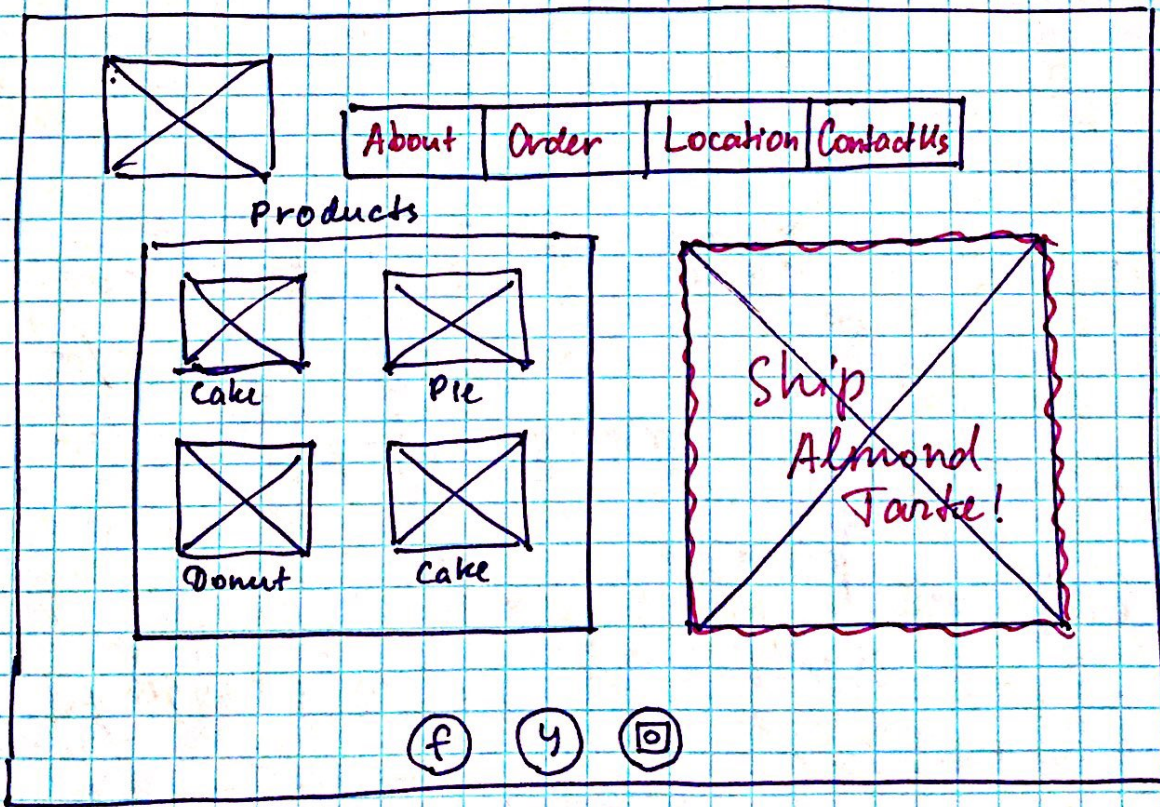 About Order Location Contact Us
Products
Cake Pie
Donut Cake
Ship
Almond
Tarte!
f y